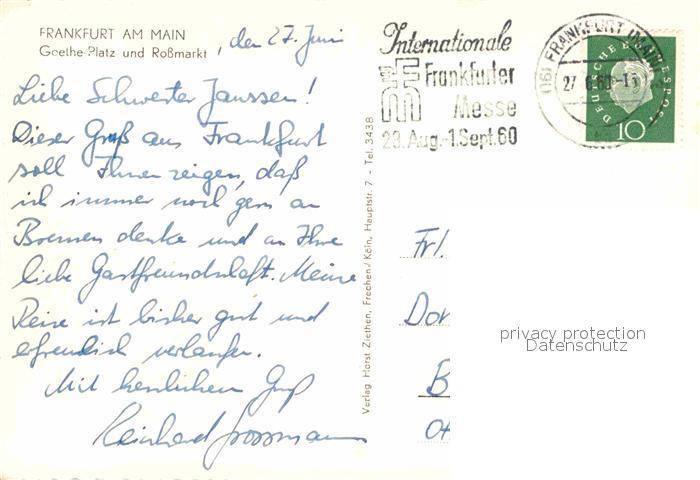 FRANKFURT AM MAIN
Goethe-Platz und Roßmarkt
, den 27. Juni
Liebe Schwester Janssen!
Dieser Gruß aus Frankfurt
soll Ihnen zeigen, daß
ich immer noch gern an
Bremen denke und an Ihre
liebe Gastfreundschaft. Meine
Reise ist bisher gut und
erfreulich verlaufen.
Mit herzlichem Gruß
Reinhard Grossmann
Verlag Horst Ziethen, Frechen/Köln, Hauptstr. 7 - Tel. 3438
Internationale
Frankfurter
Messe
28. Aug.-1. Sept. 60
(16) FRANKFURT (MAIN)
27.6.60-15
DEUTSCHE BUNDESPOST
10
Frl.
Dor
B
privacy protection
Datenschutz